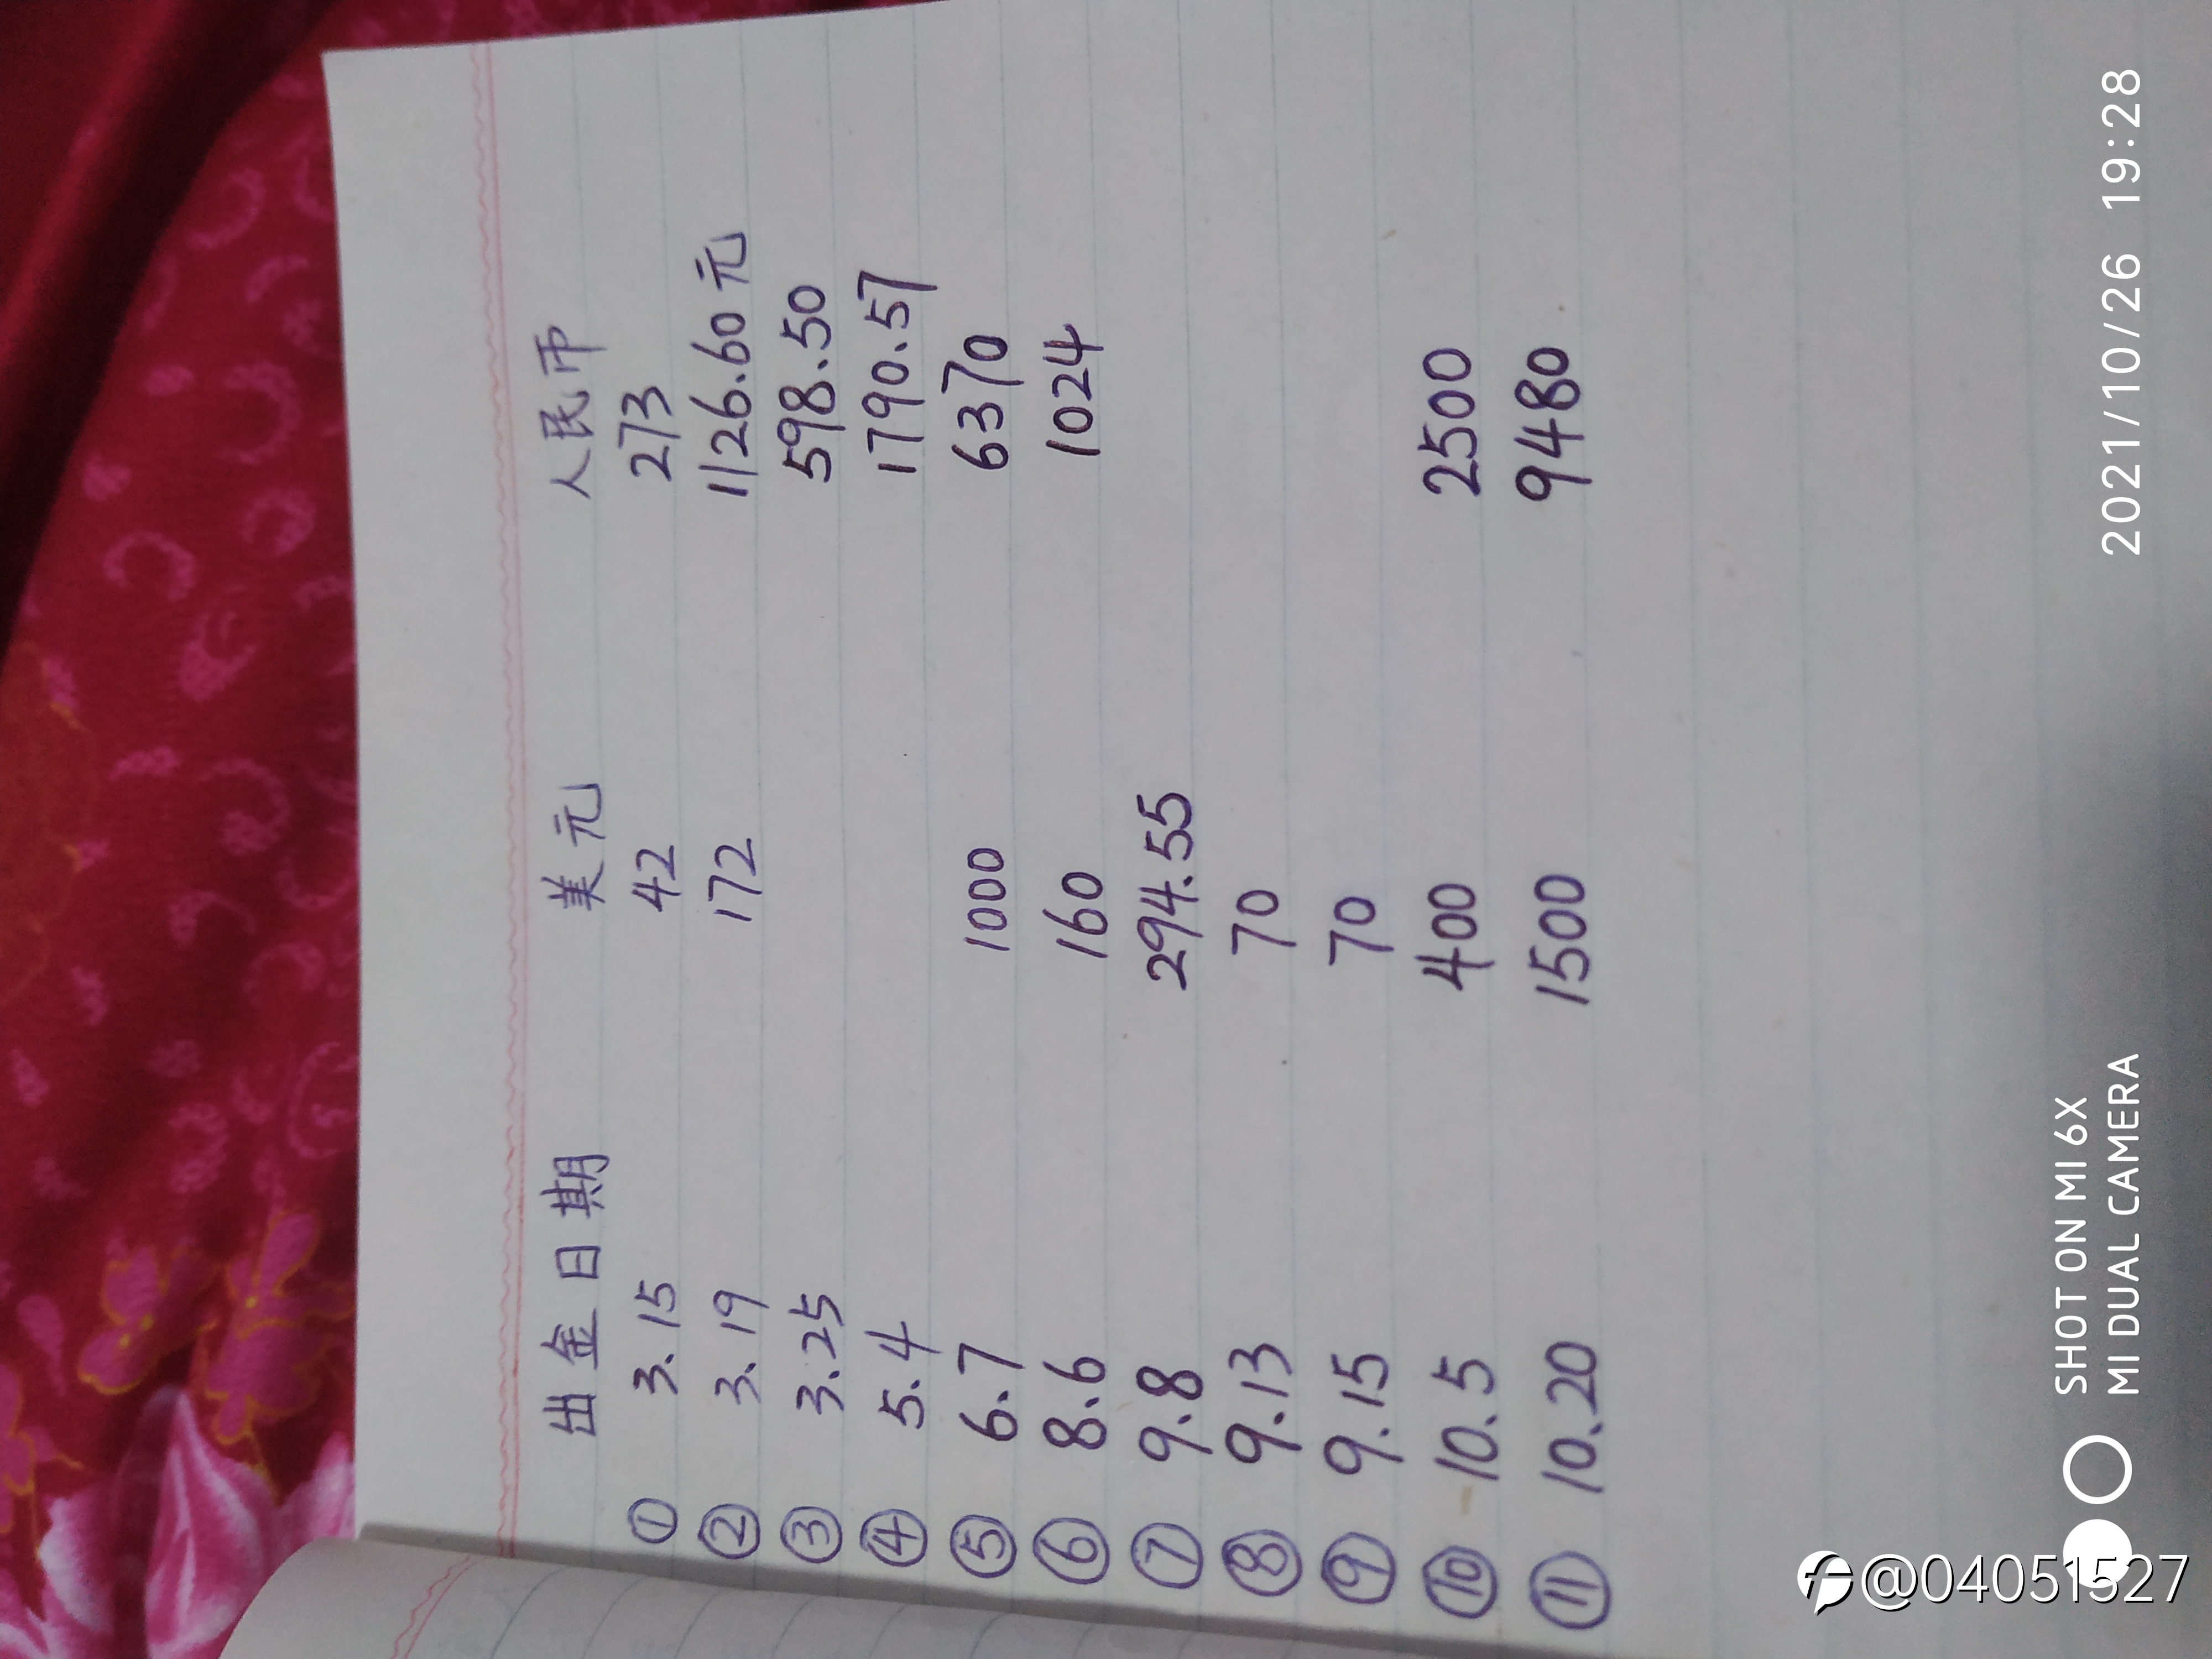 出金日期 美元 人民币
① 3.15 42 273
② 3.19 172 1126.60元
③ 3.25 598.50
④ 5.4 1790.57
⑤ 6.7 1000 6370
⑥ 8.6 160 1024
⑦ 9.8 294.55
⑧ 9.13 70
⑨ 9.15 70
⑩ 10.5 400 2500
⑪ 10.20 1500 9480
SHOT ON MI 6X
MI DUAL CAMERA
2021/10/26 19:28
@04051527